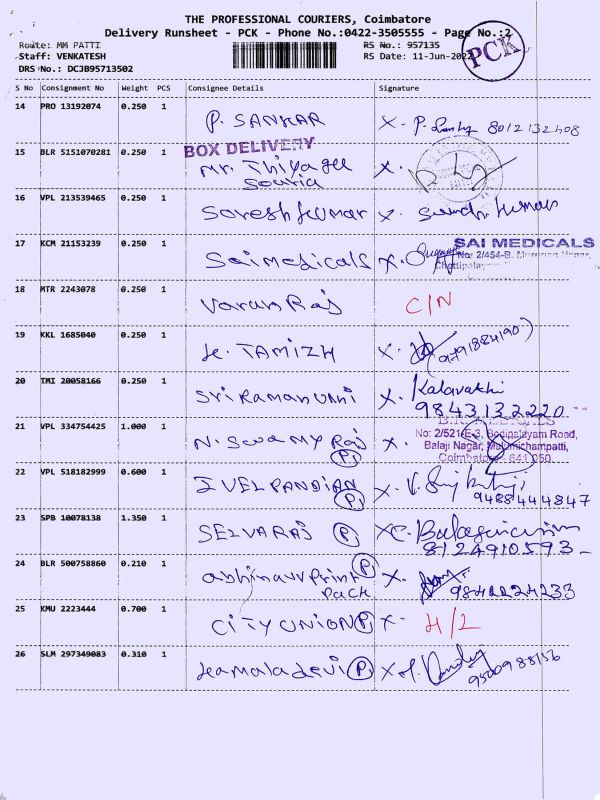 THE PROFESSIONAL COURIERS, Coimbatore
Delivery Runsheet - PCK - Phone No.:0422-3505555 - Page No.:2
Route: MM PATTI
RS No.: 957135
Staff: VENKATESH
RS Date: 11-Jun-2022
PCK
DRS No.: DCJB95713502
S No Consignment No Weight PCS Consignee Details Signature
14 PRO 13192074 0.250 1 P. SANKAR X.
BOX DELIVERY
15 BLR 5151070281 0.250 1 Mr. Thiyagu X.
Souria
16 VPL 213539465 0.250 1 Soresh Kumar X.
SAI MEDICALS
17 KCM 21153239 0.250 1 Saimedicals X.
No: 2/454-B.
18 MTR 2243078 0.250 1 Varun Raj C/N
19 KKL 1685040 0.250 1 K. TAMIZH X.
20 TMI 20058166 0.250 1 Sri Ramanunni X. Kalavathi
9843132220
21 VPL 334754425 1.000 1 N. Swamy Raj P X.
No: 2/521-E-3, Bodipalayam Road,
Balaji Nagar,
Coimbatore - 641 050
22 VPL 518182999 0.600 1 I VELPANDIAN P X.
9488444847
23 SPB 10078138 1.350 1 SELVARAJ P X
8124910593
24 BLR 500758860 0.210 1 abhinavv Print P X.
Pack
25 KMU 2223444 0.700 1 CITY UNION P X. H/L
26 SLM 297349083 0.310 1 Kamaladevi P X